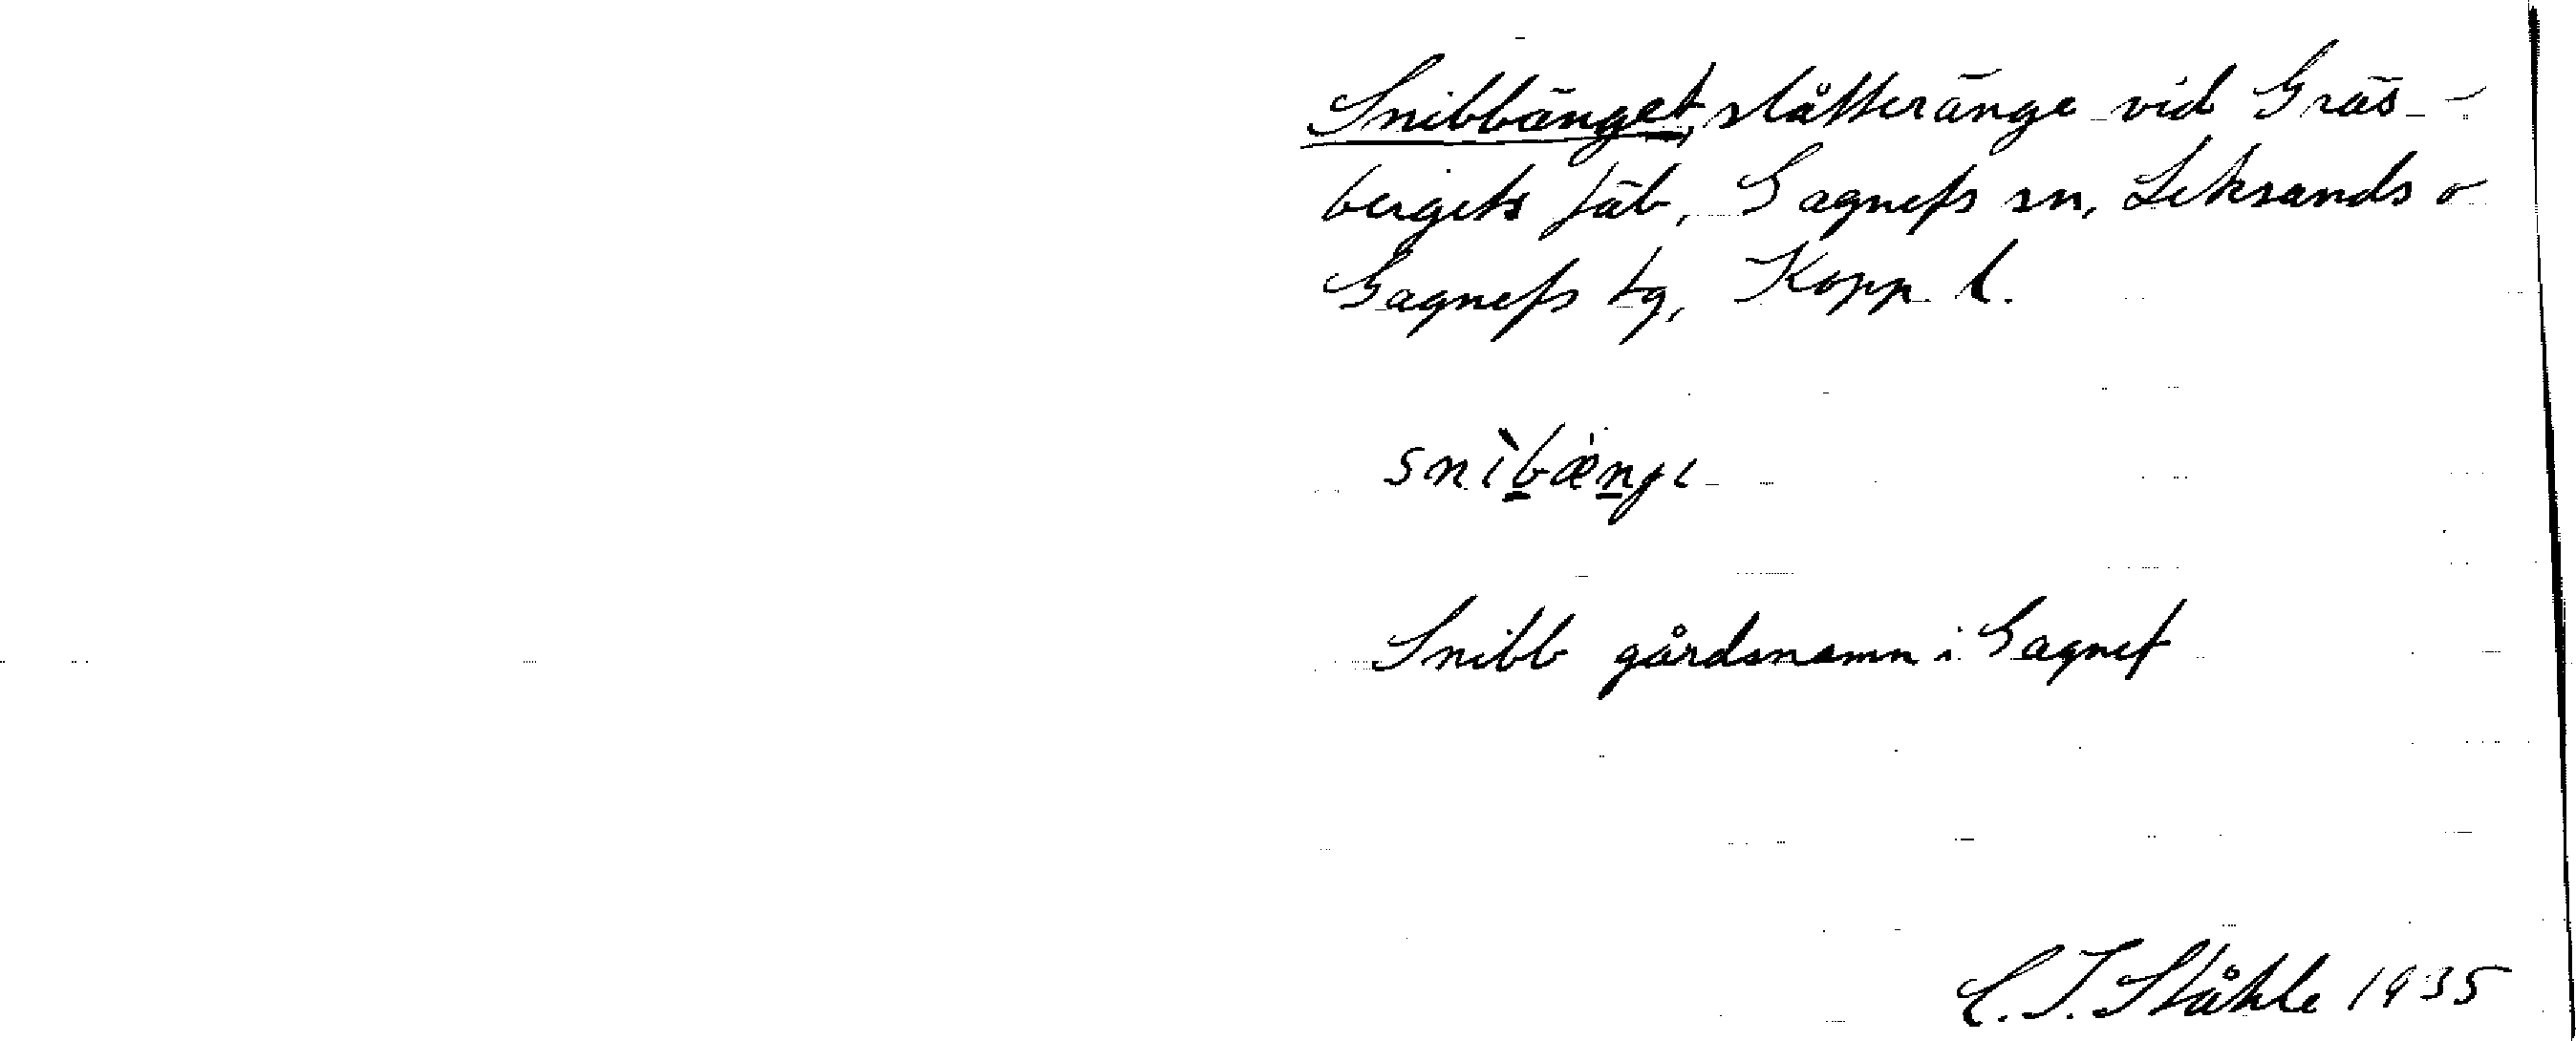 Snibbänget, slåtteränge vid Gräs-
bergets fäb., Gagnefs sn, Leksands o
Gagnefs tg, Kopp. l.
snìbæ̀nɟı
Snibb gårdsnamn i Gagnef
C. I. Ståhle 1935